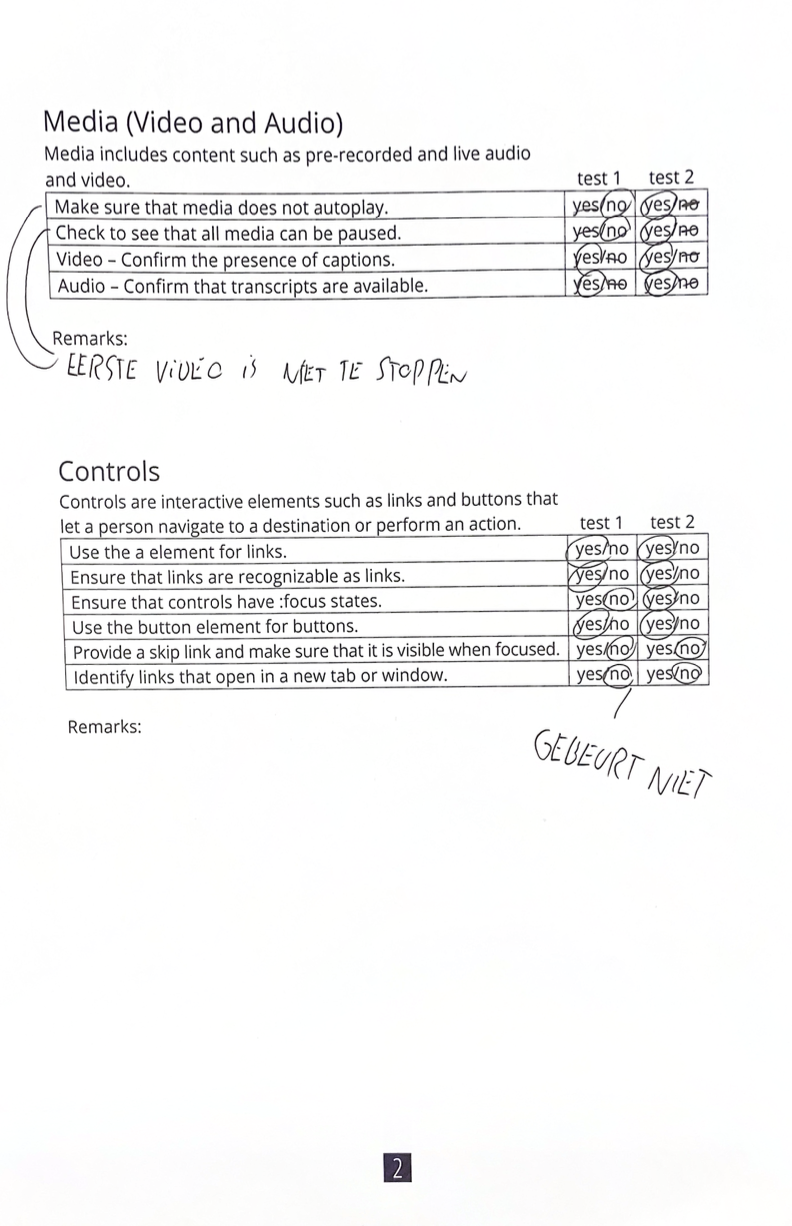 Media (Video and Audio)
Media includes content such as pre-recorded and live audio
and video. test 1 test 2
Make sure that media does not autoplay. yes/no yes/no
Check to see that all media can be paused. yes/no yes/no
Video – Confirm the presence of captions. yes/no yes/no
Audio – Confirm that transcripts are available. yes/no yes/no
Remarks:
EERSTE VIDEO IS NIET TE STOPPEN
Controls
Controls are interactive elements such as links and buttons that
let a person navigate to a destination or perform an action. test 1 test 2
Use the a element for links. yes/no yes/no
Ensure that links are recognizable as links. yes/no yes/no
Ensure that controls have :focus states. yes/no yes/no
Use the button element for buttons. yes/no yes/no
Provide a skip link and make sure that it is visible when focused. yes/no yes/no
Identify links that open in a new tab or window. yes/no yes/no
Remarks:
GEBEURT NIET
2